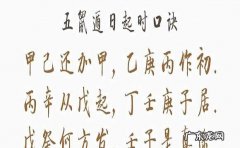 五鼠遁日起时口诀
甲己还加甲，乙庚丙作初.
丙辛从戊起，丁壬庚子居.
戊癸何方发，壬子是真